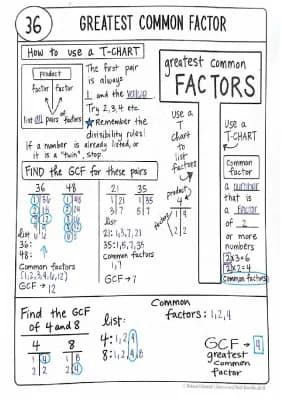 36
GREATEST COMMON FACTOR
How to use a T-CHART
product
factor factor
list all pairs of factors
The first pair
is always
1 and the value
Try 2,3,4 etc.
★Remember the
divisibility rules!
If a number is already listed, or
it is a "twin", stop.
greatest common
FACTORS
Use a
T
chart
to
list
factors
product
4
factors
1 4
2 2
Use a
T-CHART
Common
factor
a number
that is
a factor
of 2
or more
numbers
2x3=6
2x2=4
Common factors
FIND the GCF for these pairs
36 48
1 36
2 18
3 12
4 9
6 6
1 48
2 24
3 16
4 12
6 8
list
36:
48:
Common factors
(1,2,3,4,6,12)
GCF → 12
21 35
1 21
3 7
1 35
5 7
list
21: 1,3,7,21
35: 1,5,7,35
Common factors
1,7
GCF → 7
Find the GCF
of 4 and 8
4 8
1 4
2 2
1 8
2 4
list:
4: 1,2,4
8: 1,2,4,8
Common
factors: 1,2,4
GCF → 4
greatest
common
factor